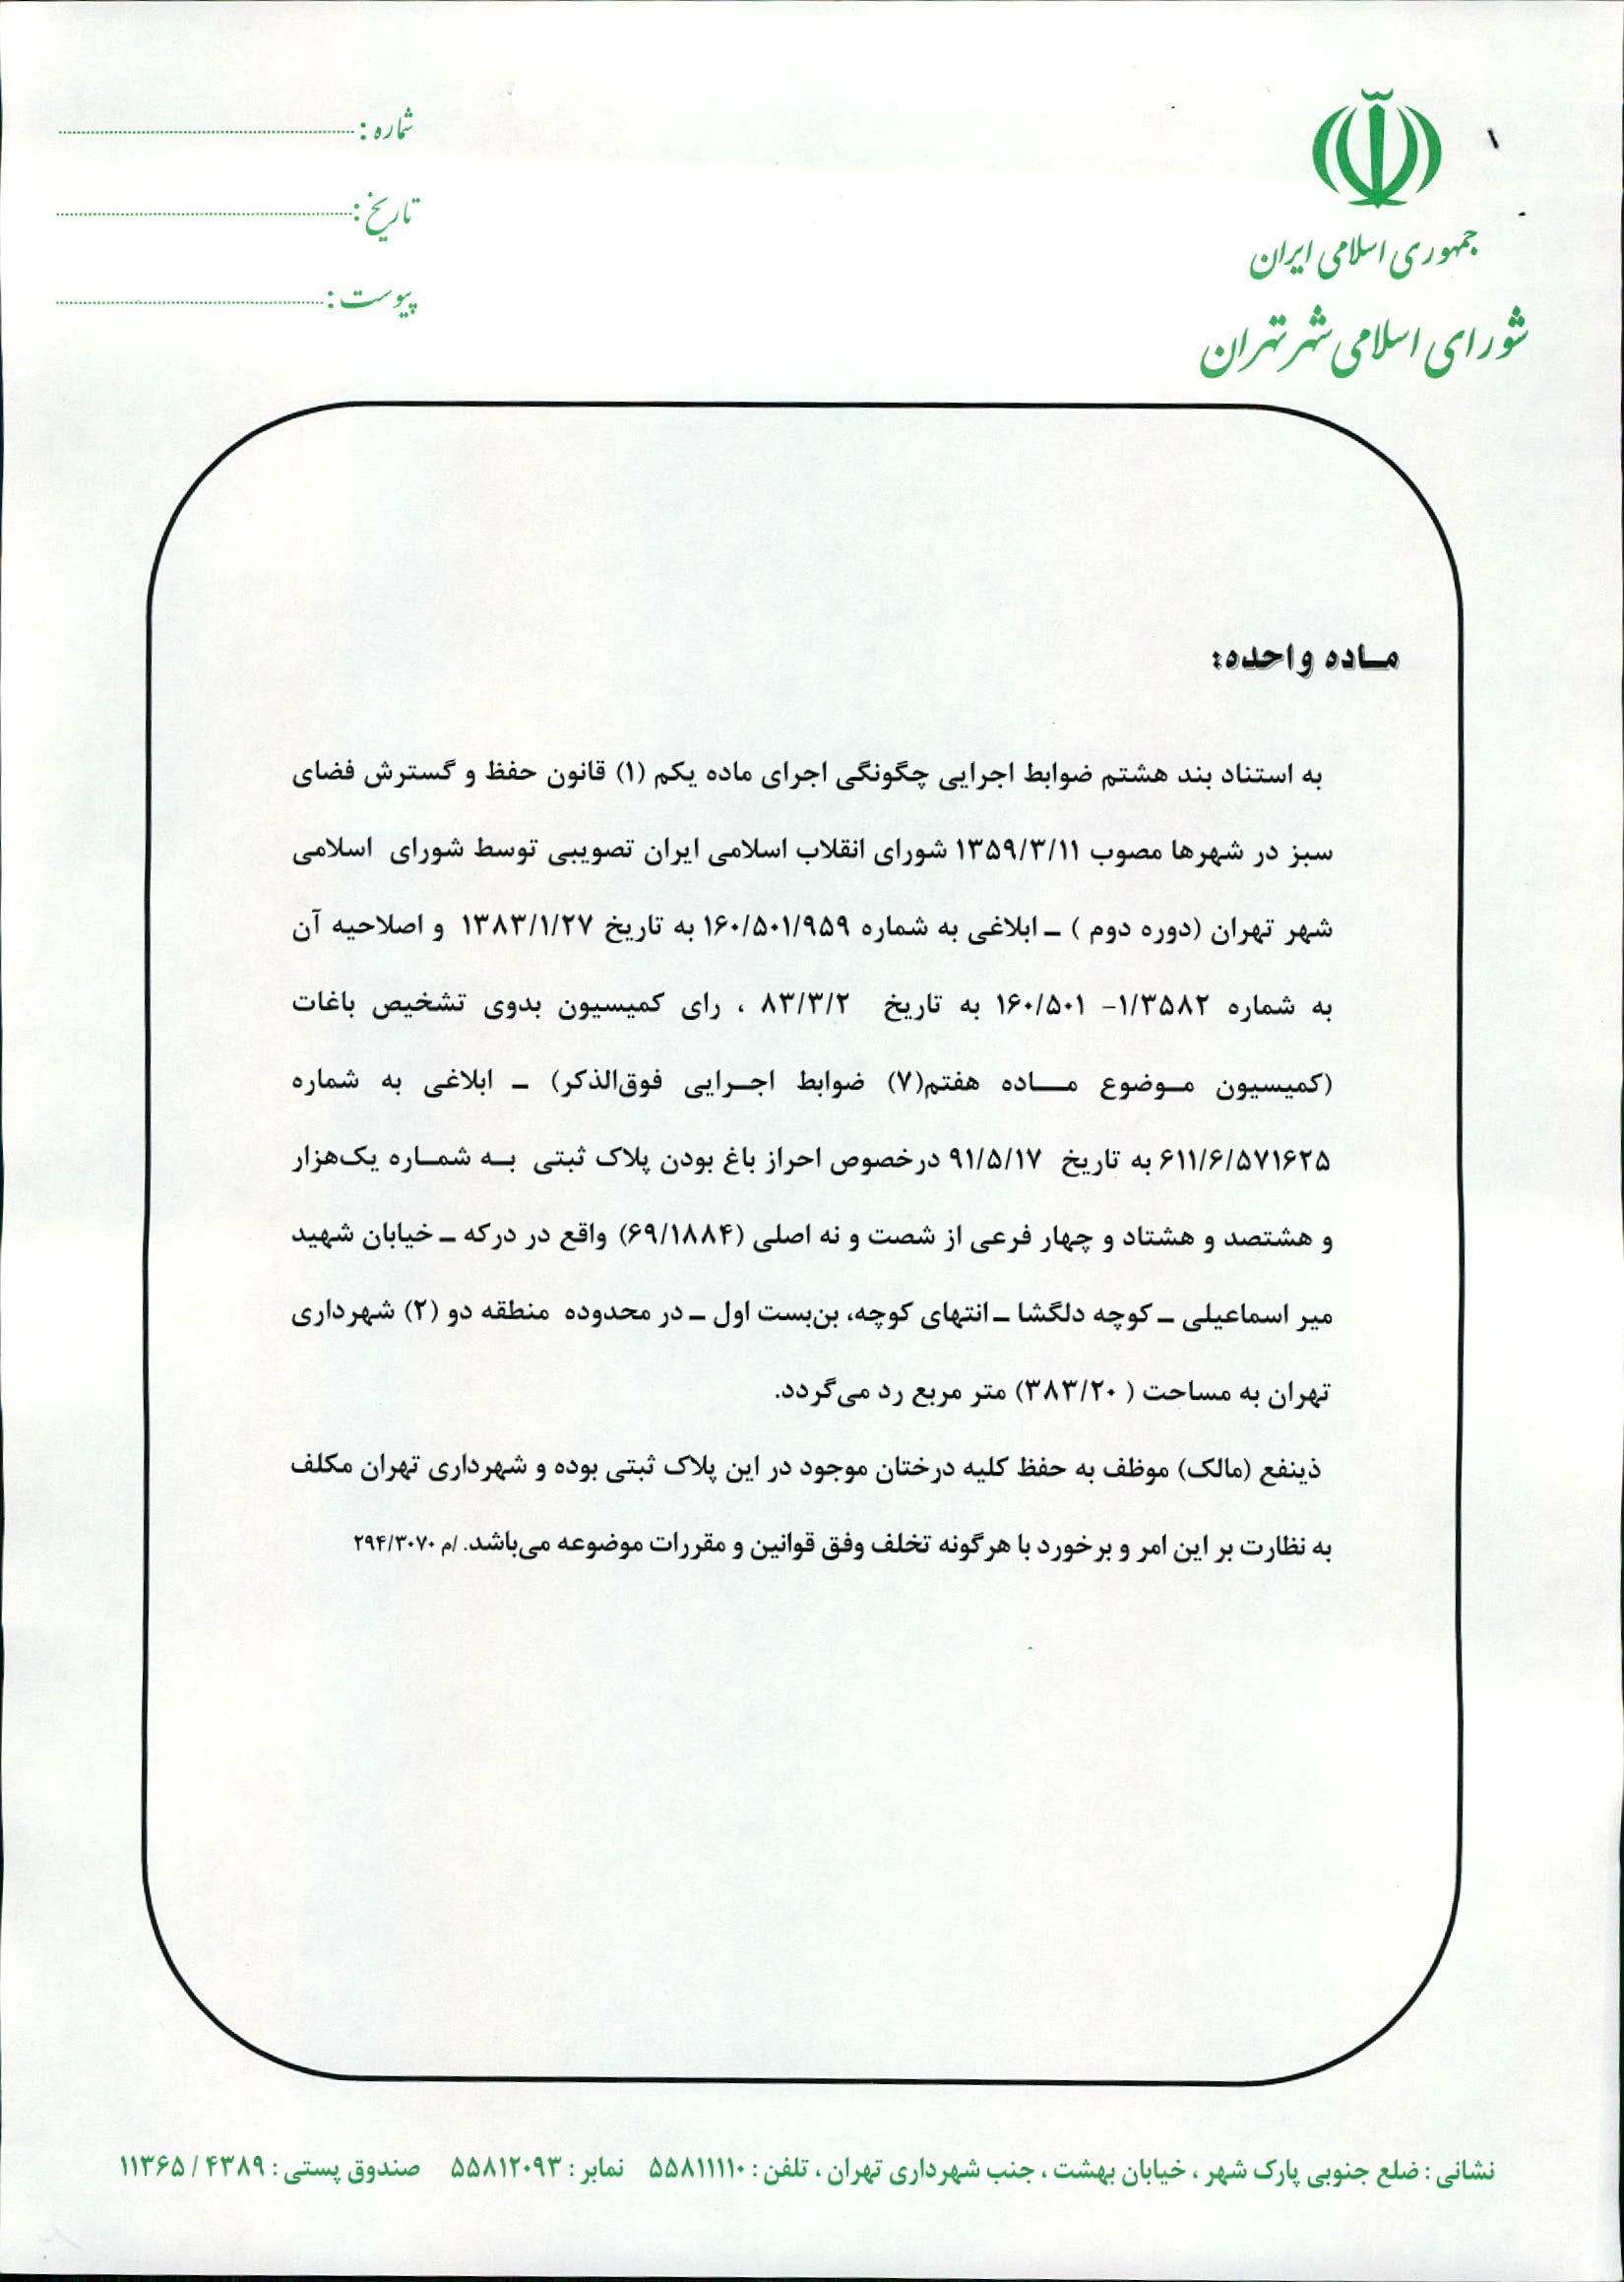 ۱
جمهوری اسلامی ایران
شورای اسلامی شهر تهران
شماره :
تاریخ :
پیوست :
ماده واحده:
به استناد بند هشتم ضوابط اجرایی چگونگی اجرای ماده یکم (۱) قانون حفظ و گسترش فضای
سبز در شهرها مصوب ۱۳۵۹/۳/۱۱ شورای انقلاب اسلامی ایران تصویبی توسط شورای اسلامی
شهر تهران (دوره دوم ) ـ ابلاغی به شماره ۱۶۰/۵۰۱/۹۵۹ به تاریخ ۱۳۸۳/۱/۲۷ و اصلاحیه آن
به شماره ۱/۳۵۸۲- ۱۶۰/۵۰۱ به تاریخ ۸۳/۳/۲ ، رای کمیسیون بدوی تشخیص باغات
(کمیسیون موضوع ماده هفتم(۷) ضوابط اجرایی فوق‌الذکر) ـ ابلاغی به شماره
۶۱۱/۶/۵۷۱۶۲۵ به تاریخ ۹۱/۵/۱۷ درخصوص احراز باغ بودن پلاک ثبتی به شماره یک‌هزار
و هشتصد و هشتاد و چهار فرعی از شصت و نه اصلی (۶۹/۱۸۸۴) واقع در درکه ـ خیابان شهید
میر اسماعیلی ـ کوچه دلگشا ـ انتهای کوچه، بن‌بست اول ـ در محدوده منطقه دو (۲) شهرداری
تهران به مساحت ( ۳۸۳/۲۰) متر مربع رد می‌گردد.
ذینفع (مالک) موظف به حفظ کلیه درختان موجود در این پلاک ثبتی بوده و شهرداری تهران مکلف
به نظارت بر این امر و برخورد با هرگونه تخلف وفق قوانین و مقررات موضوعه می‌باشد. /م ۲۹۴/۳۰۷۰
نشانی : ضلع جنوبی پارک شهر ، خیابان بهشت ، جنب شهرداری تهران ، تلفن : ۵۵۸۱۱۱۱۰ نمابر : ۵۵۸۱۲۰۹۳ صندوق پستی : ۴۳۸۹ / ۱۱۳۶۵